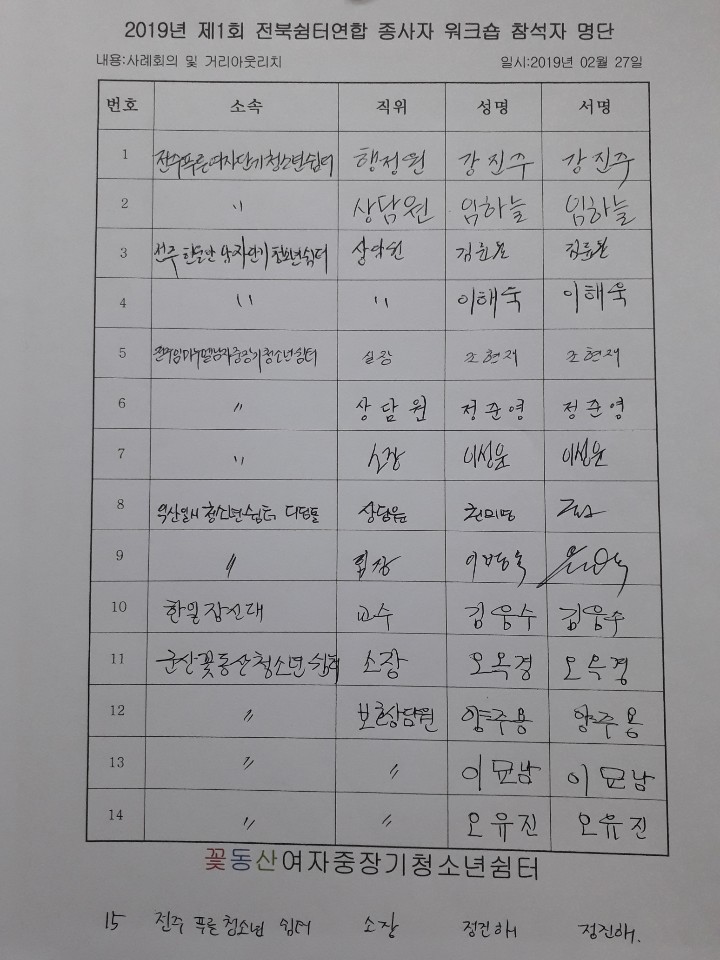 2019년 제1회 전북쉼터연합 종사자 워크숍 참석자 명단
내용:사례회의 및 거리아웃리치 일시:2019년 02월 27일
번호 소속 직위 성명 서명
1 전주푸른여자단기청소년쉼터 행정원 강진주 강진주
2 〃 상담원 임하늘 임하늘
3 전주한울안남자단기청소년쉼터
4 〃 〃 이해욱 이해욱
5 실장 조현재 조현재
6 〃 상담원 정준영 정준영
7 〃 소장 이성윤 이성윤
8 익산일시청소년쉼터 상담원
9 〃 팀장
10 한일장신대 교수 김웅수 김웅수
11 군산꽃동산청소년쉼터 소장 오옥경 오옥경
12 〃 보호상담원 양주용 양주용
13 〃 〃 이묘남 이묘남
14 〃 〃 오유진 오유진
꽃동산여자중장기청소년쉼터
15 전주 푸른청소년 쉼터 소장 정진해 정진해.